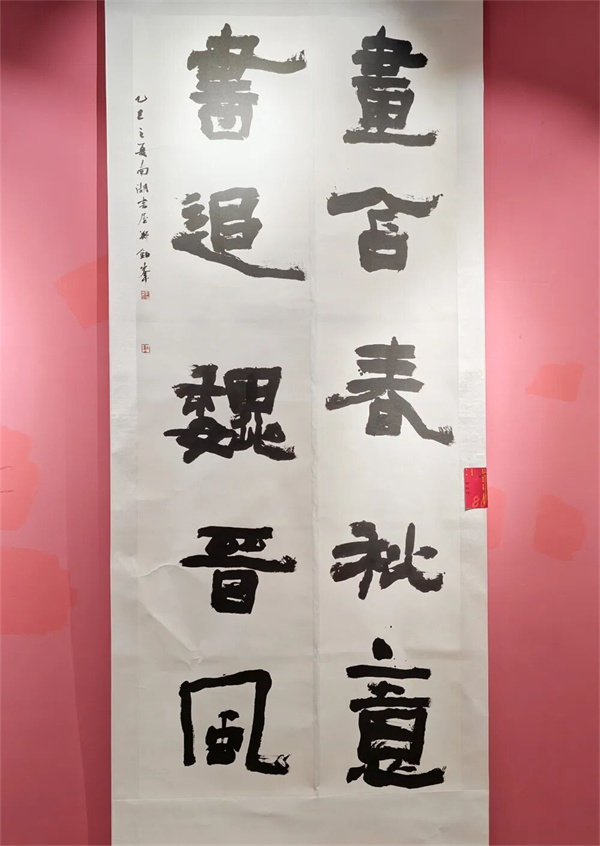 畫含春秋意
書追魏晉風
乙巳之夏南湖書屋